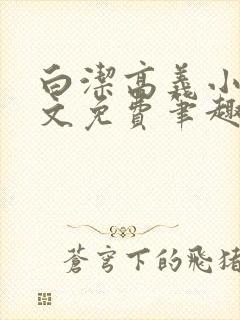 白潔高義小
文免費筆趣
蒼穹下的飛豬